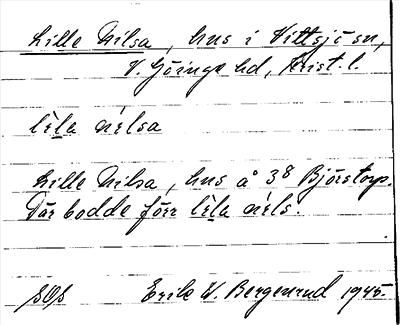 Lille Nilsa, hus i Vittsjö sn,
V. Göinge hd, Krist. l.
lìla nélsa
Lille Nilsa, hus å 38 Björstorp.
Där bodde förr lìla néls.
SOS Erik W. Bergenrud 1945.